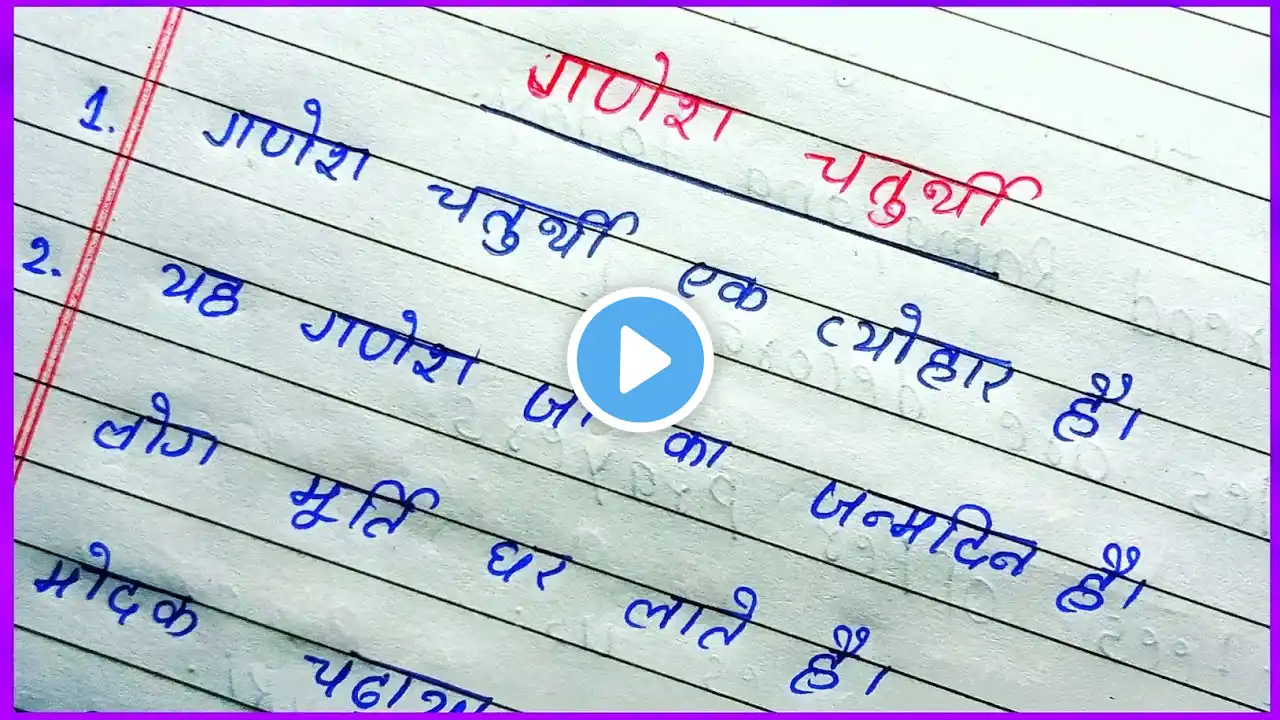 गणेश चतुर्थी
1. गणेश चतुर्थी एक त्योहार है।
2. यह गणेश जी का जन्मदिन है।
लोग मूर्ति घर लाते है।
मोदक